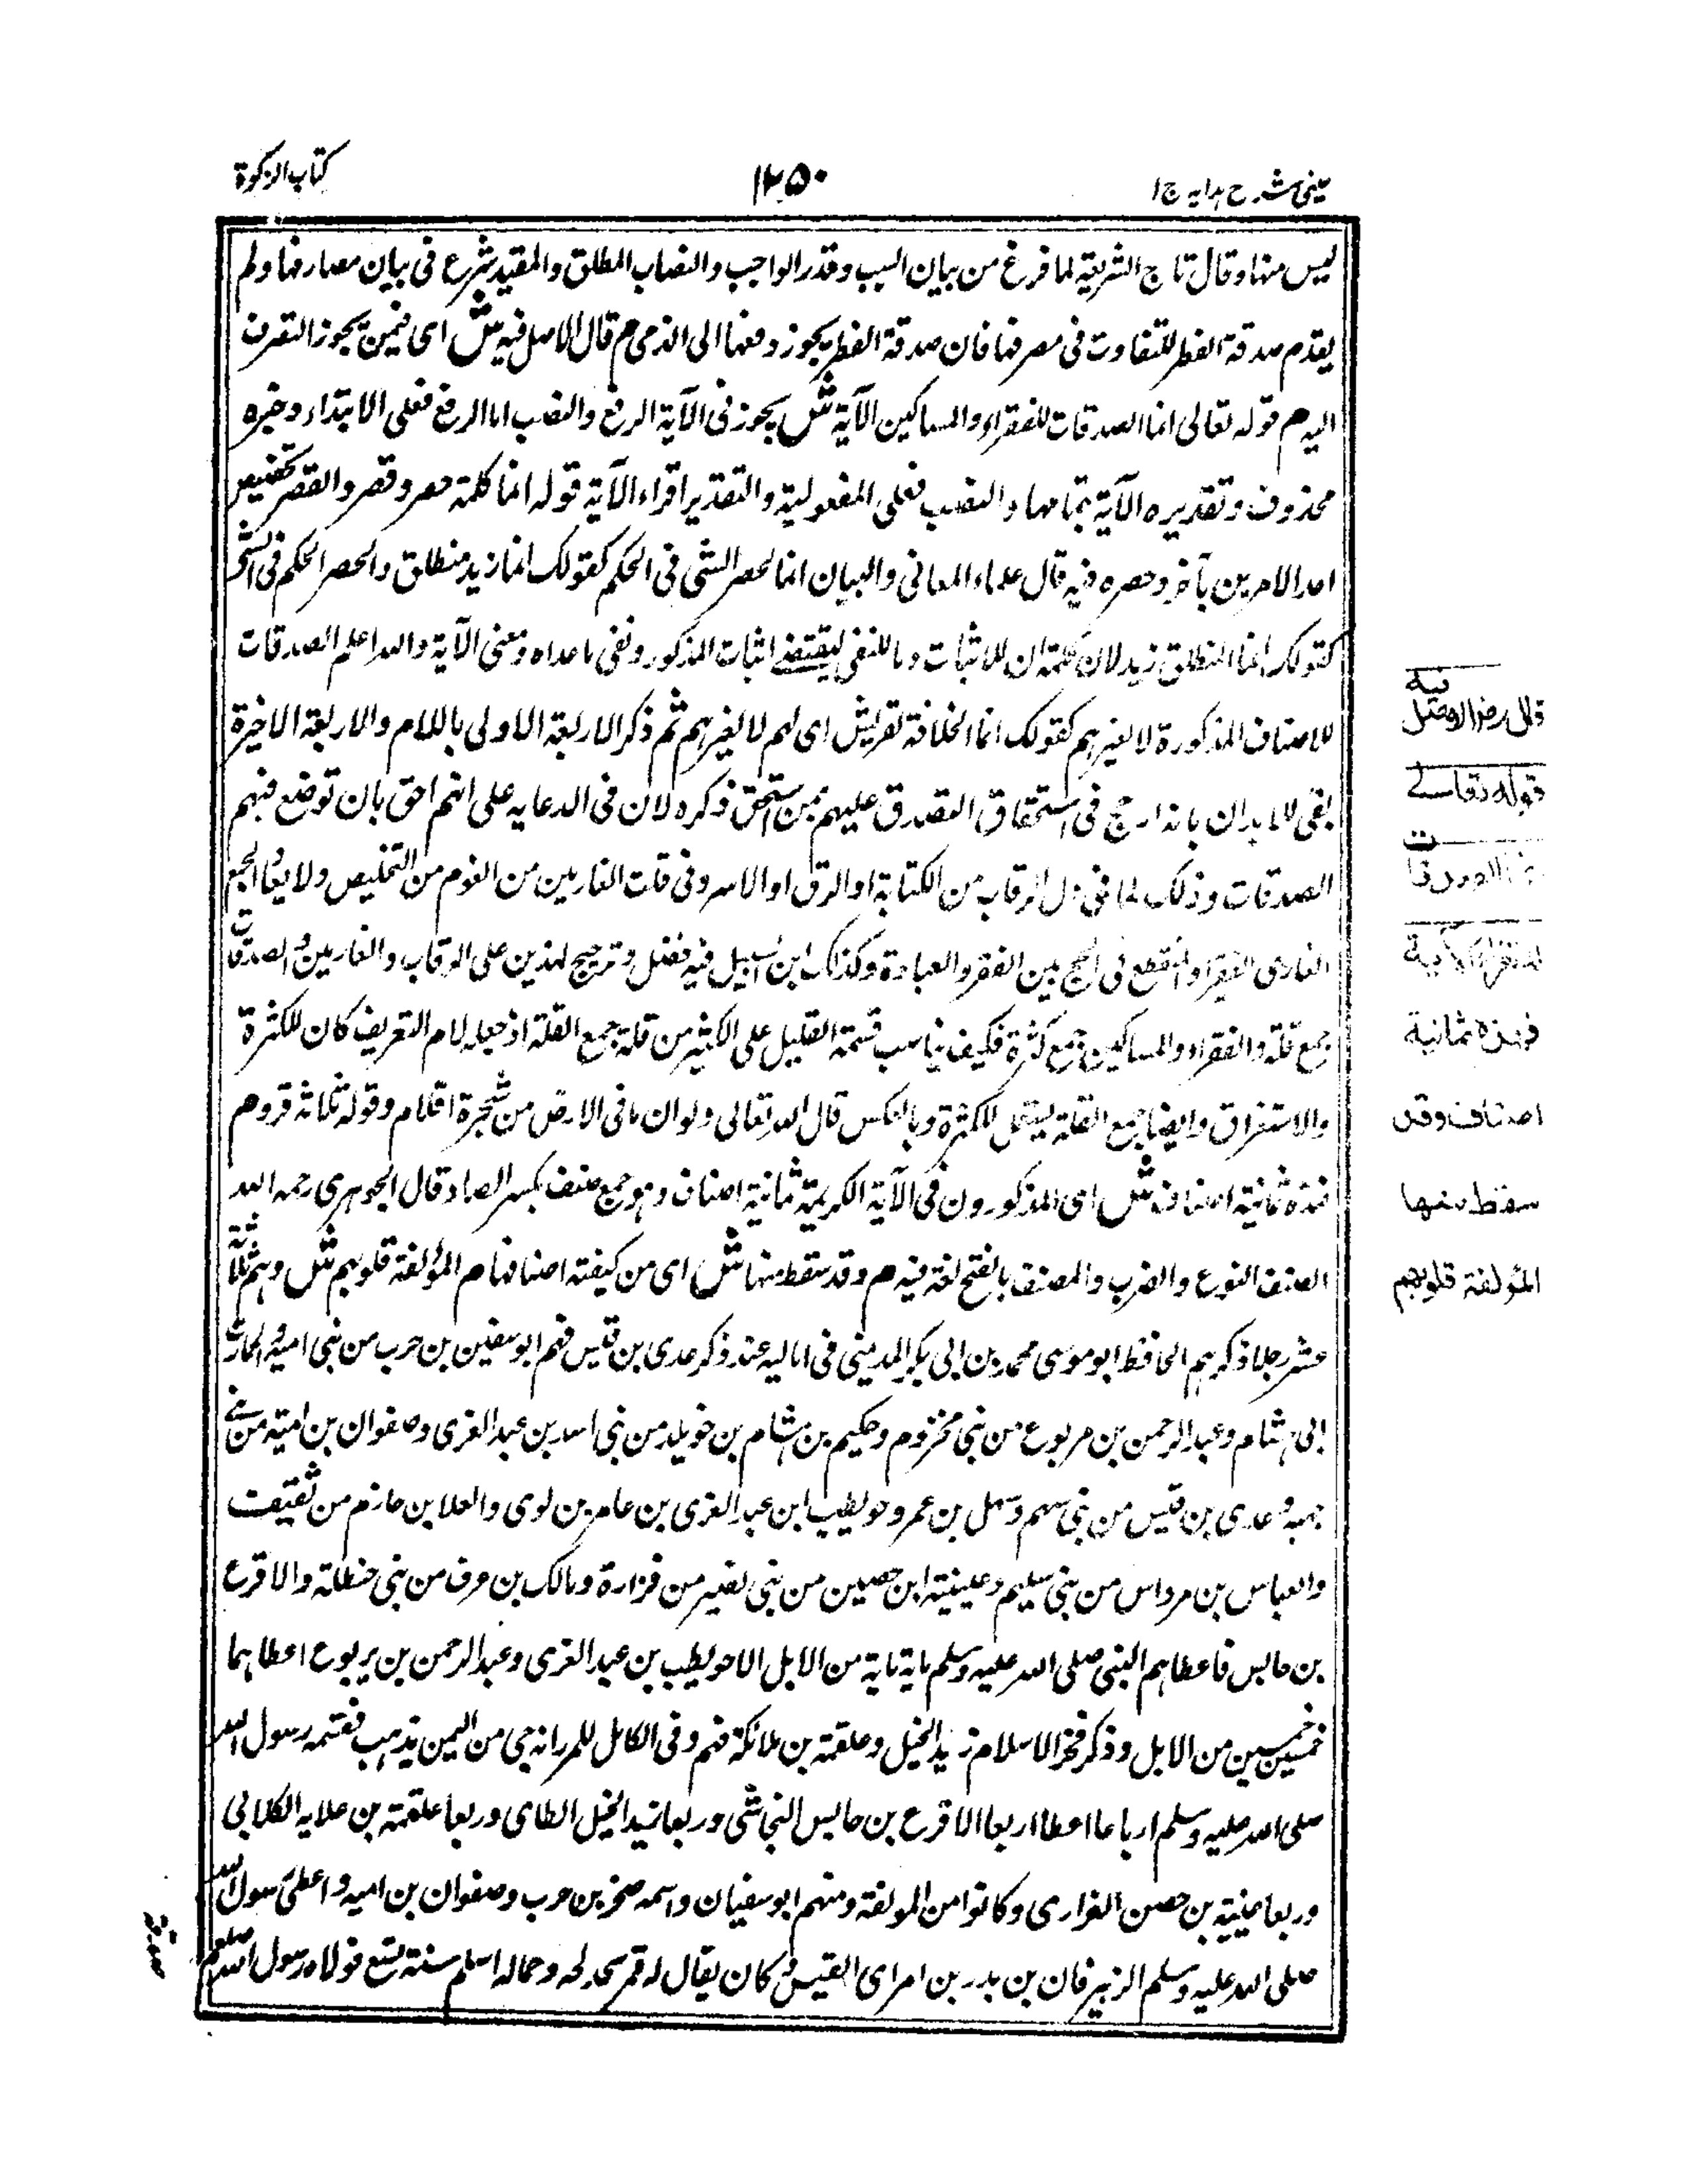 عینی شرح ہدایہ ج۱
۱۲۵۰
کتاب الزکوة
لیس منها وقال تاج الشریعة لما فرغ من بیان السبب وقدر الواجب والنصاب المطلق والمقید شرع فی بیان مصارفها ولم
یقدم صدقة الفطر للتفاوت فی مصرفها فان صدقة الفطر یجوز دفعها الی الذمی م قال الاصل فیه ش ای فیمن یجوز التصرف
الیه م قوله تعالی انما الصدقات للفقراء والمساکین الآیة ش یجوز فی الآیة الرفع والنصب اما الرفع فعلی الابتداء وخبره
محذوف وتقدیره الآیة بتمامها والنصب فعلی المفعولیة والتقدیر اقراء الآیة قوله انما کلمة حصر وقصر والقصر تخصیص
احد الامرین بآخر وحصره فیه قال علماء المعانی والبیان انما لحصر الشی فی الحکم کقولک انما زید منطلق والحصر الحکم فی الشی
کقولک انما المنطلق زید لان کلمة ان للاثبات وما للنفی لیقتضے اثبات المذکور ونفی ما عداه ومعنی الآیة والله اعلم الصدقات
للاصناف المذکورة لا لغیرہم کقولک انما الخلافة لقریش ای لهم لا لغیرہم ثم ذکر الاربعة الاولی باللام والاربعة الاخیرة
بفی للایدان بانه ارجح فی استحقاق التصدق علیہم ممن استحق ذکره لان فی الدعایه علی انہم احق بان توضع فیہم
الصدقات وذلک لما فی الرقاب من الکتابة او الرق او الاسر وفی الغارمین من الغرم من التخلیص ولا
الغازی الفقیر والمنقطع فی الحج بین الفقر والعبادة وکذلک ابن السبیل فیه فضل وترجیح لهذین علی الرقاب والغارمین والصدقات
جمع قلة والفقراء والمساکین جمع کثرة فکیف یناسب قسمة القلیل علی الکثیر من قلة جمع القلة اذ لام التعریف کان للکثرة
والاستغراق وایضا جمع القلة یستعمل للکثرة وبالعکس قال الله تعالی ولو ان ما فی الارض من شجرة اقلام وقوله ثلاثة قروء م
فهذه ثمانیة اصناف ش ای المذکورون فی الآیة الکریمة ثمانیة اصناف وہو جمع صنف بکسر الصاد قال الجوہری رحمه الله
الصنف النوع والضرب والصنف بالفتح لغة فیه م وقد سقط منها ش ای من اصنافها م المؤلفة قلوبہم ش وہم ثلاثة
عشر رجلا ذکرہم الحافظ ابو موسی محمد بن ابی بکر المدینی فی امالیه عند ذکر عدی بن قیس فہم ابو سفین بن حرب من بنی امیة والحارث
ابی ہشام وعبد الرحمن بن مربوع من بنی مخزوم وحکیم بن ہشام بن خویلد من بنی اسد بن عبد العزی وصفوان بن امیة من بنے
وعدی بن قیس من بنی سہم وسہل بن عمرو حویطب ابن عبد العزی بن عامر بن لوی والعلا بن حازم من ثقیف
والعباس بن مرداس من بنی سلیم وعیینة ابن حصین من بنی نضیر من فزارة ومالک بن عوف من بنی حنظلة والاقرع
بن حابس فاعطاہم النبی صلی الله علیه وسلم مایة مایة من الابل الا حویطب بن عبد العزی وعبد الرحمن بن یربوع اعطاہما
خمسین خمسین من الابل وذکر فخر الاسلام زید الخیل وعلقمة بن علاثة منہم وفی الکامل للمبرد انه جی من الیمن بذہب فقسمه رسول الله
صلی الله علیه وسلم ارباعا اعطا اربعا الاقرع بن حابس النجاشی وربعا زید الخیل الطای وربعا علقمة بن علایه الکلابی
وربعا عیینة بن حصن الفزاری وکانوا من المولفة ومنہم ابو سفیان واسمه صخر بن حرب وصفوان بن امیه واعطی رسول الله
صلی الله علیه وسلم الزبرقان بن بدر بن امرای القیس کان یقال له قمر نجد لجماله اسلم سنة تسع فولاه رسول الله صلعم
قال رضا الاصل فیه
قوله تعالے
انما الصدقات
للفقراء الآیة
فهذه ثمانیة
اصناف وقد
سقط منها
المؤلفة قلوبهم